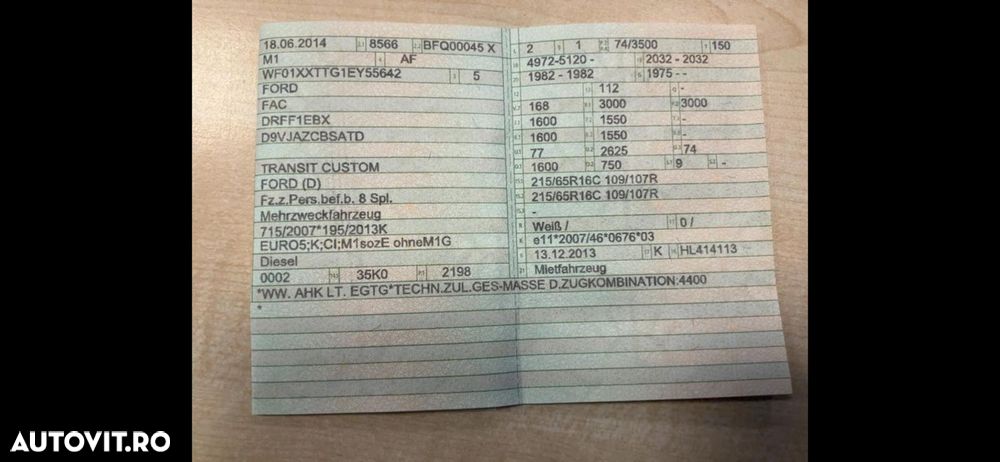 18.06.2014 2.1 8566 2.2 BFQ00045 X
M1 4 AF
WF01XXTTG1EY55642 3 5
FORD
FAC
DRFF1EBX
D9VJAZCBSATD
TRANSIT CUSTOM
FORD (D)
Fz.z.Pers.bef.b. 8 Spl.
Mehrzweckfahrzeug
715/2007*195/2013K
EURO5;K;CI;M1sozE ohneM1G
Diesel
0002 35K0 2198
*WW. AHK LT. EGTG*TECHN.ZUL.GES-MASSE D.ZUGKOMBINATION:4400
*
2 1 74/3500 150
4972-5120 - 2032 - 2032
1982 - 1982 1975 - -
112 -
168 3000 3000
1600 1550 -
1600 1550 -
77 2625 74
1600 750 9 -
215/65R16C 109/107R
215/65R16C 109/107R
-
Weiß / 0 /
e11*2007/46*0676*03
13.12.2013 K HL414113
Mietfahrzeug
AUTOVIT.RO